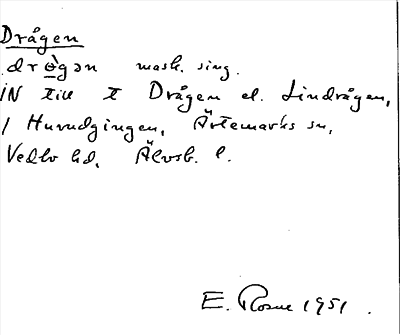 Drågen
drògən mask. sing.
IN till t Drågen el. Lindrågen,
/ Huvudgingen, Ärtemarks sn,
Vedbo hd, Älvsb. l.
E. Rosne 1951.